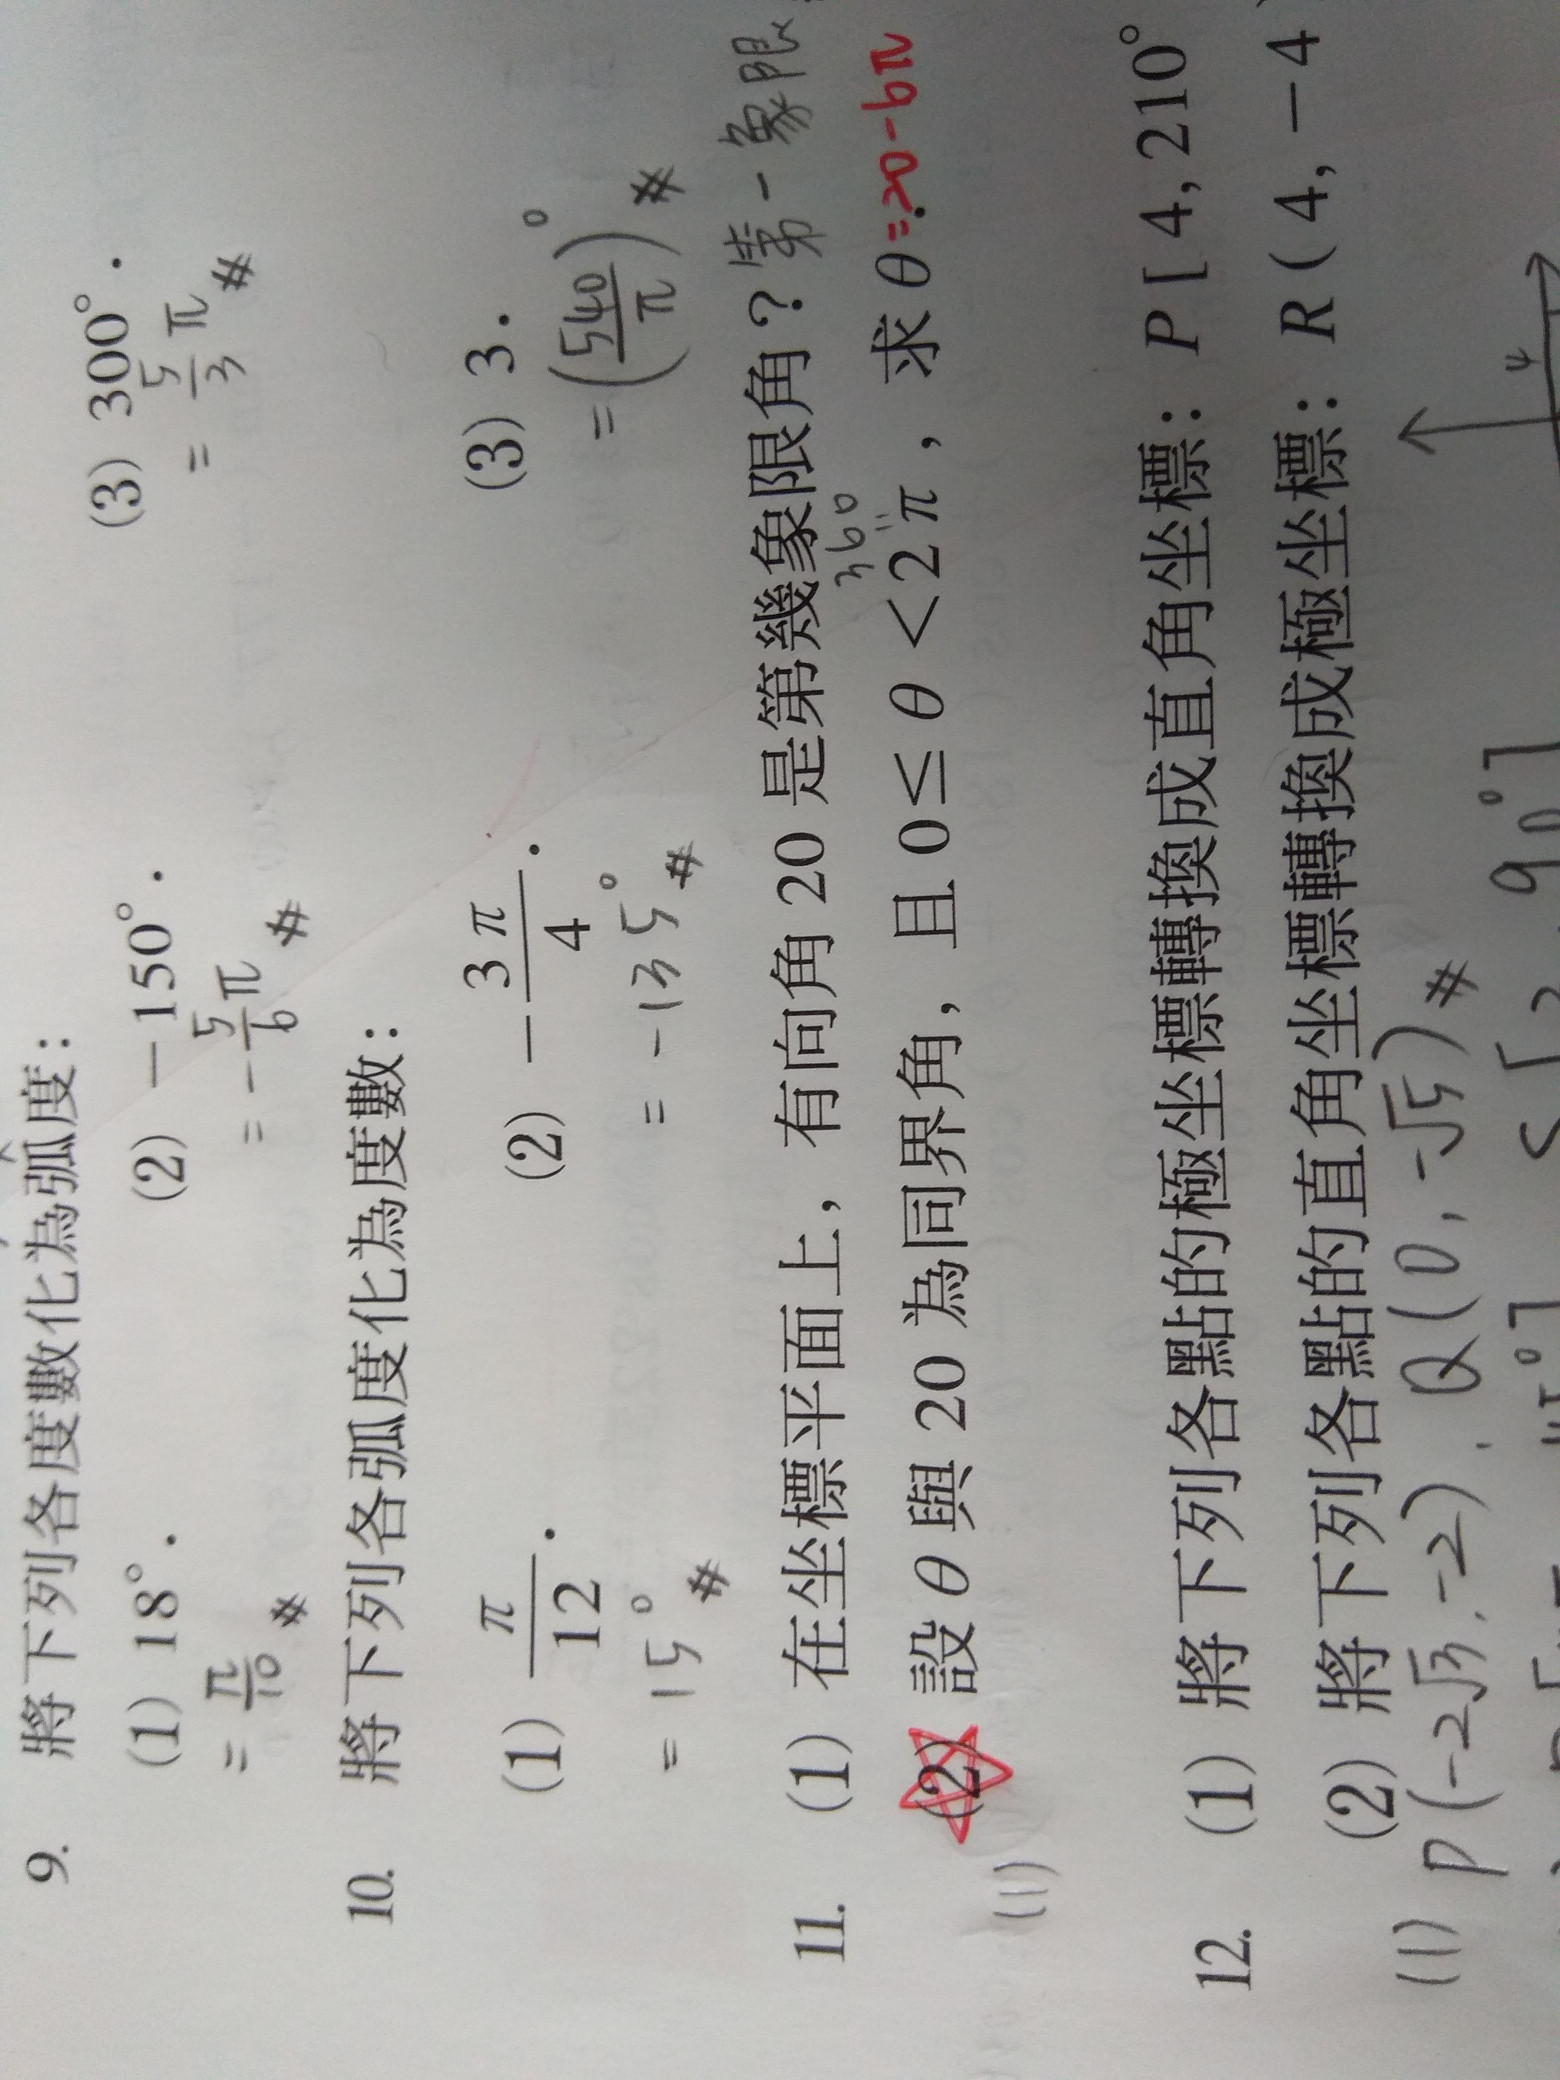 9. 將下列各度數化為弧度：
(1) 18°. (2) −150°. (3) 300°.
= π/10 # = −5/6 π # = 5/3 π #
10. 將下列各弧度化為度數：
(1) π/12. (2) −3π/4. (3) 3.
= 15° # = −135° # = (540/π)° #
11. (1) 在坐標平面上，有向角 20 是第幾象限角？第一象限
360
(2) 設 θ 與 20 為同界角，且 0≤ θ <2π，求 θ = 20−6π
(1)
12. (1) 將下列各點的極坐標轉換成直角坐標：P [ 4, 210°
(2) 將下列各點的直角坐標轉換成極坐標：R ( 4, −4
(1) P(−2√3, −2), Q(0, −√5) #
4
90°]